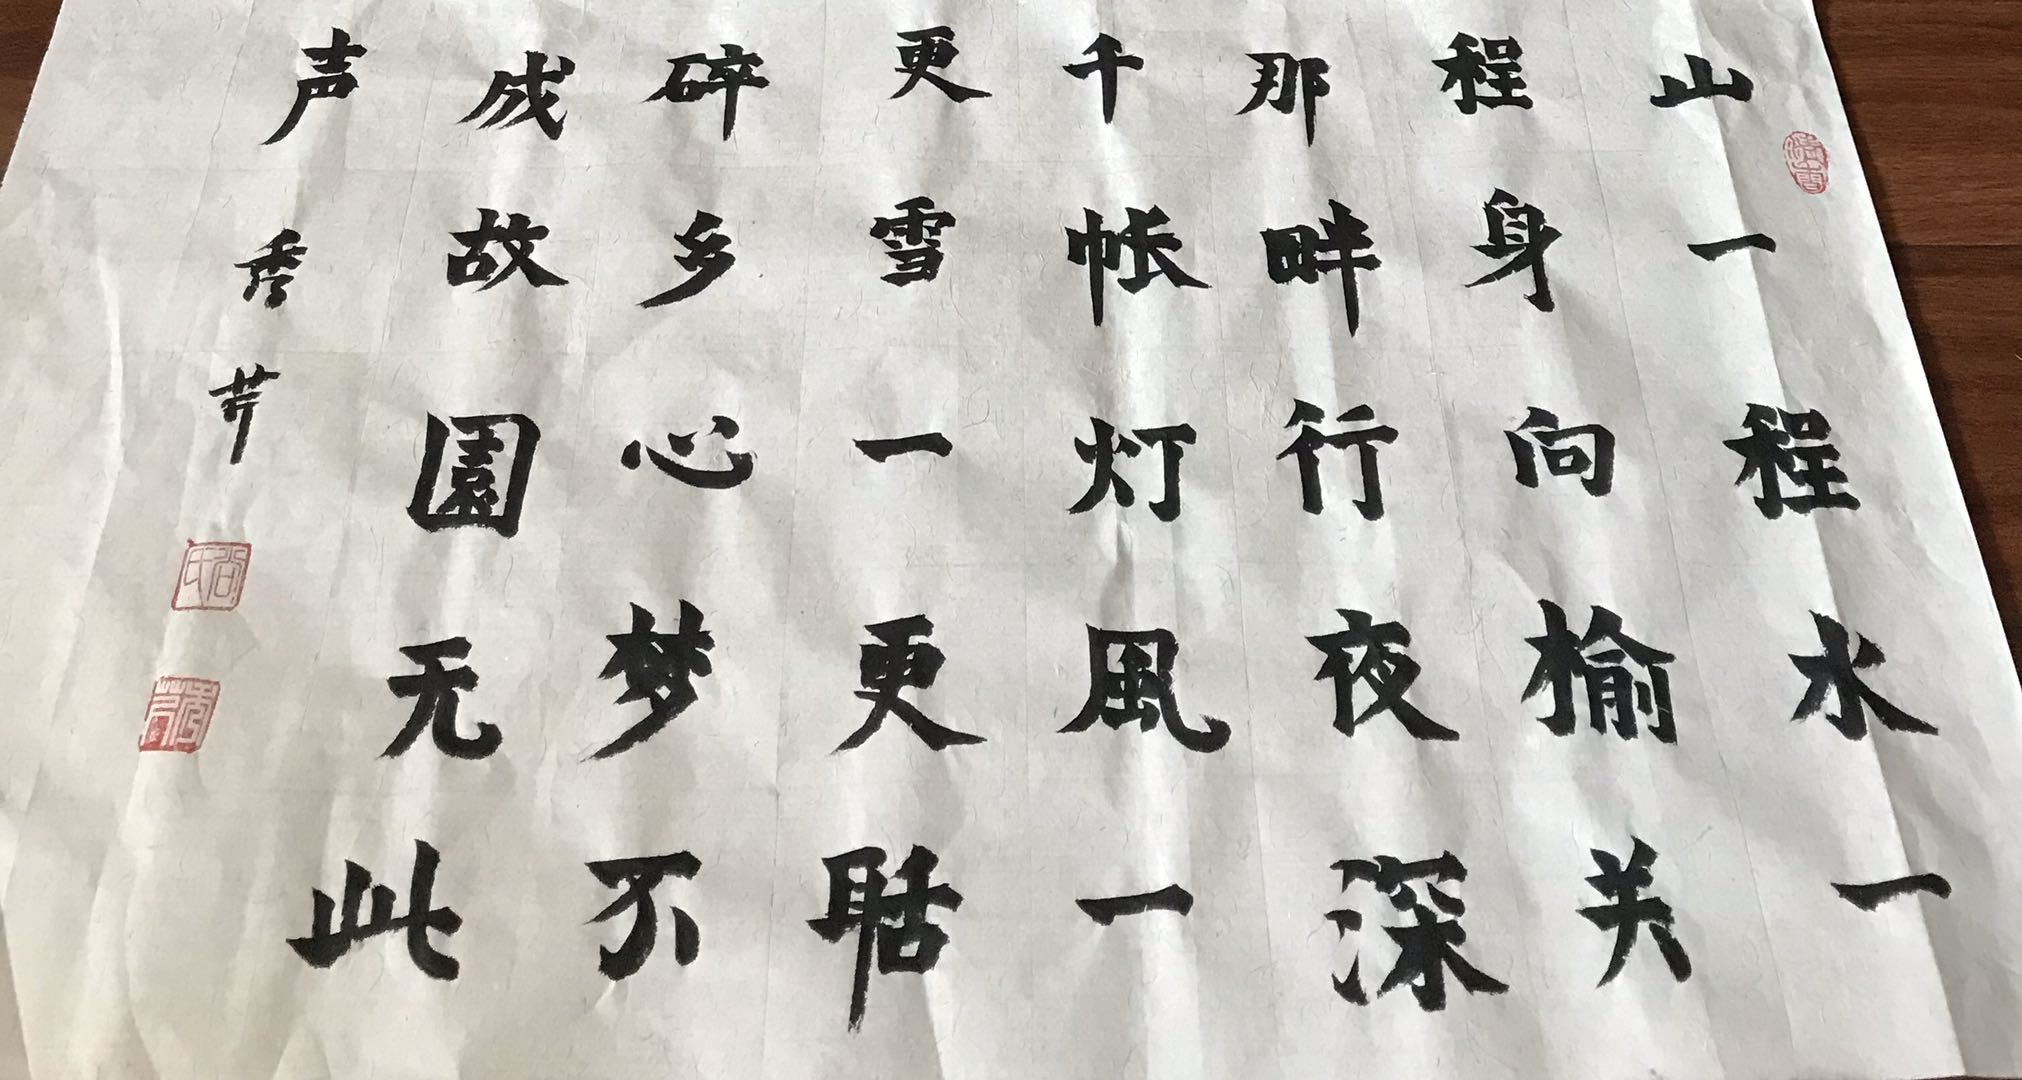 山一程水一
程身向榆关
那畔行夜深
千帐灯風一
更雪一更聒
碎乡心梦不
成故園无此
声 秀芹
尚氏
秀芹